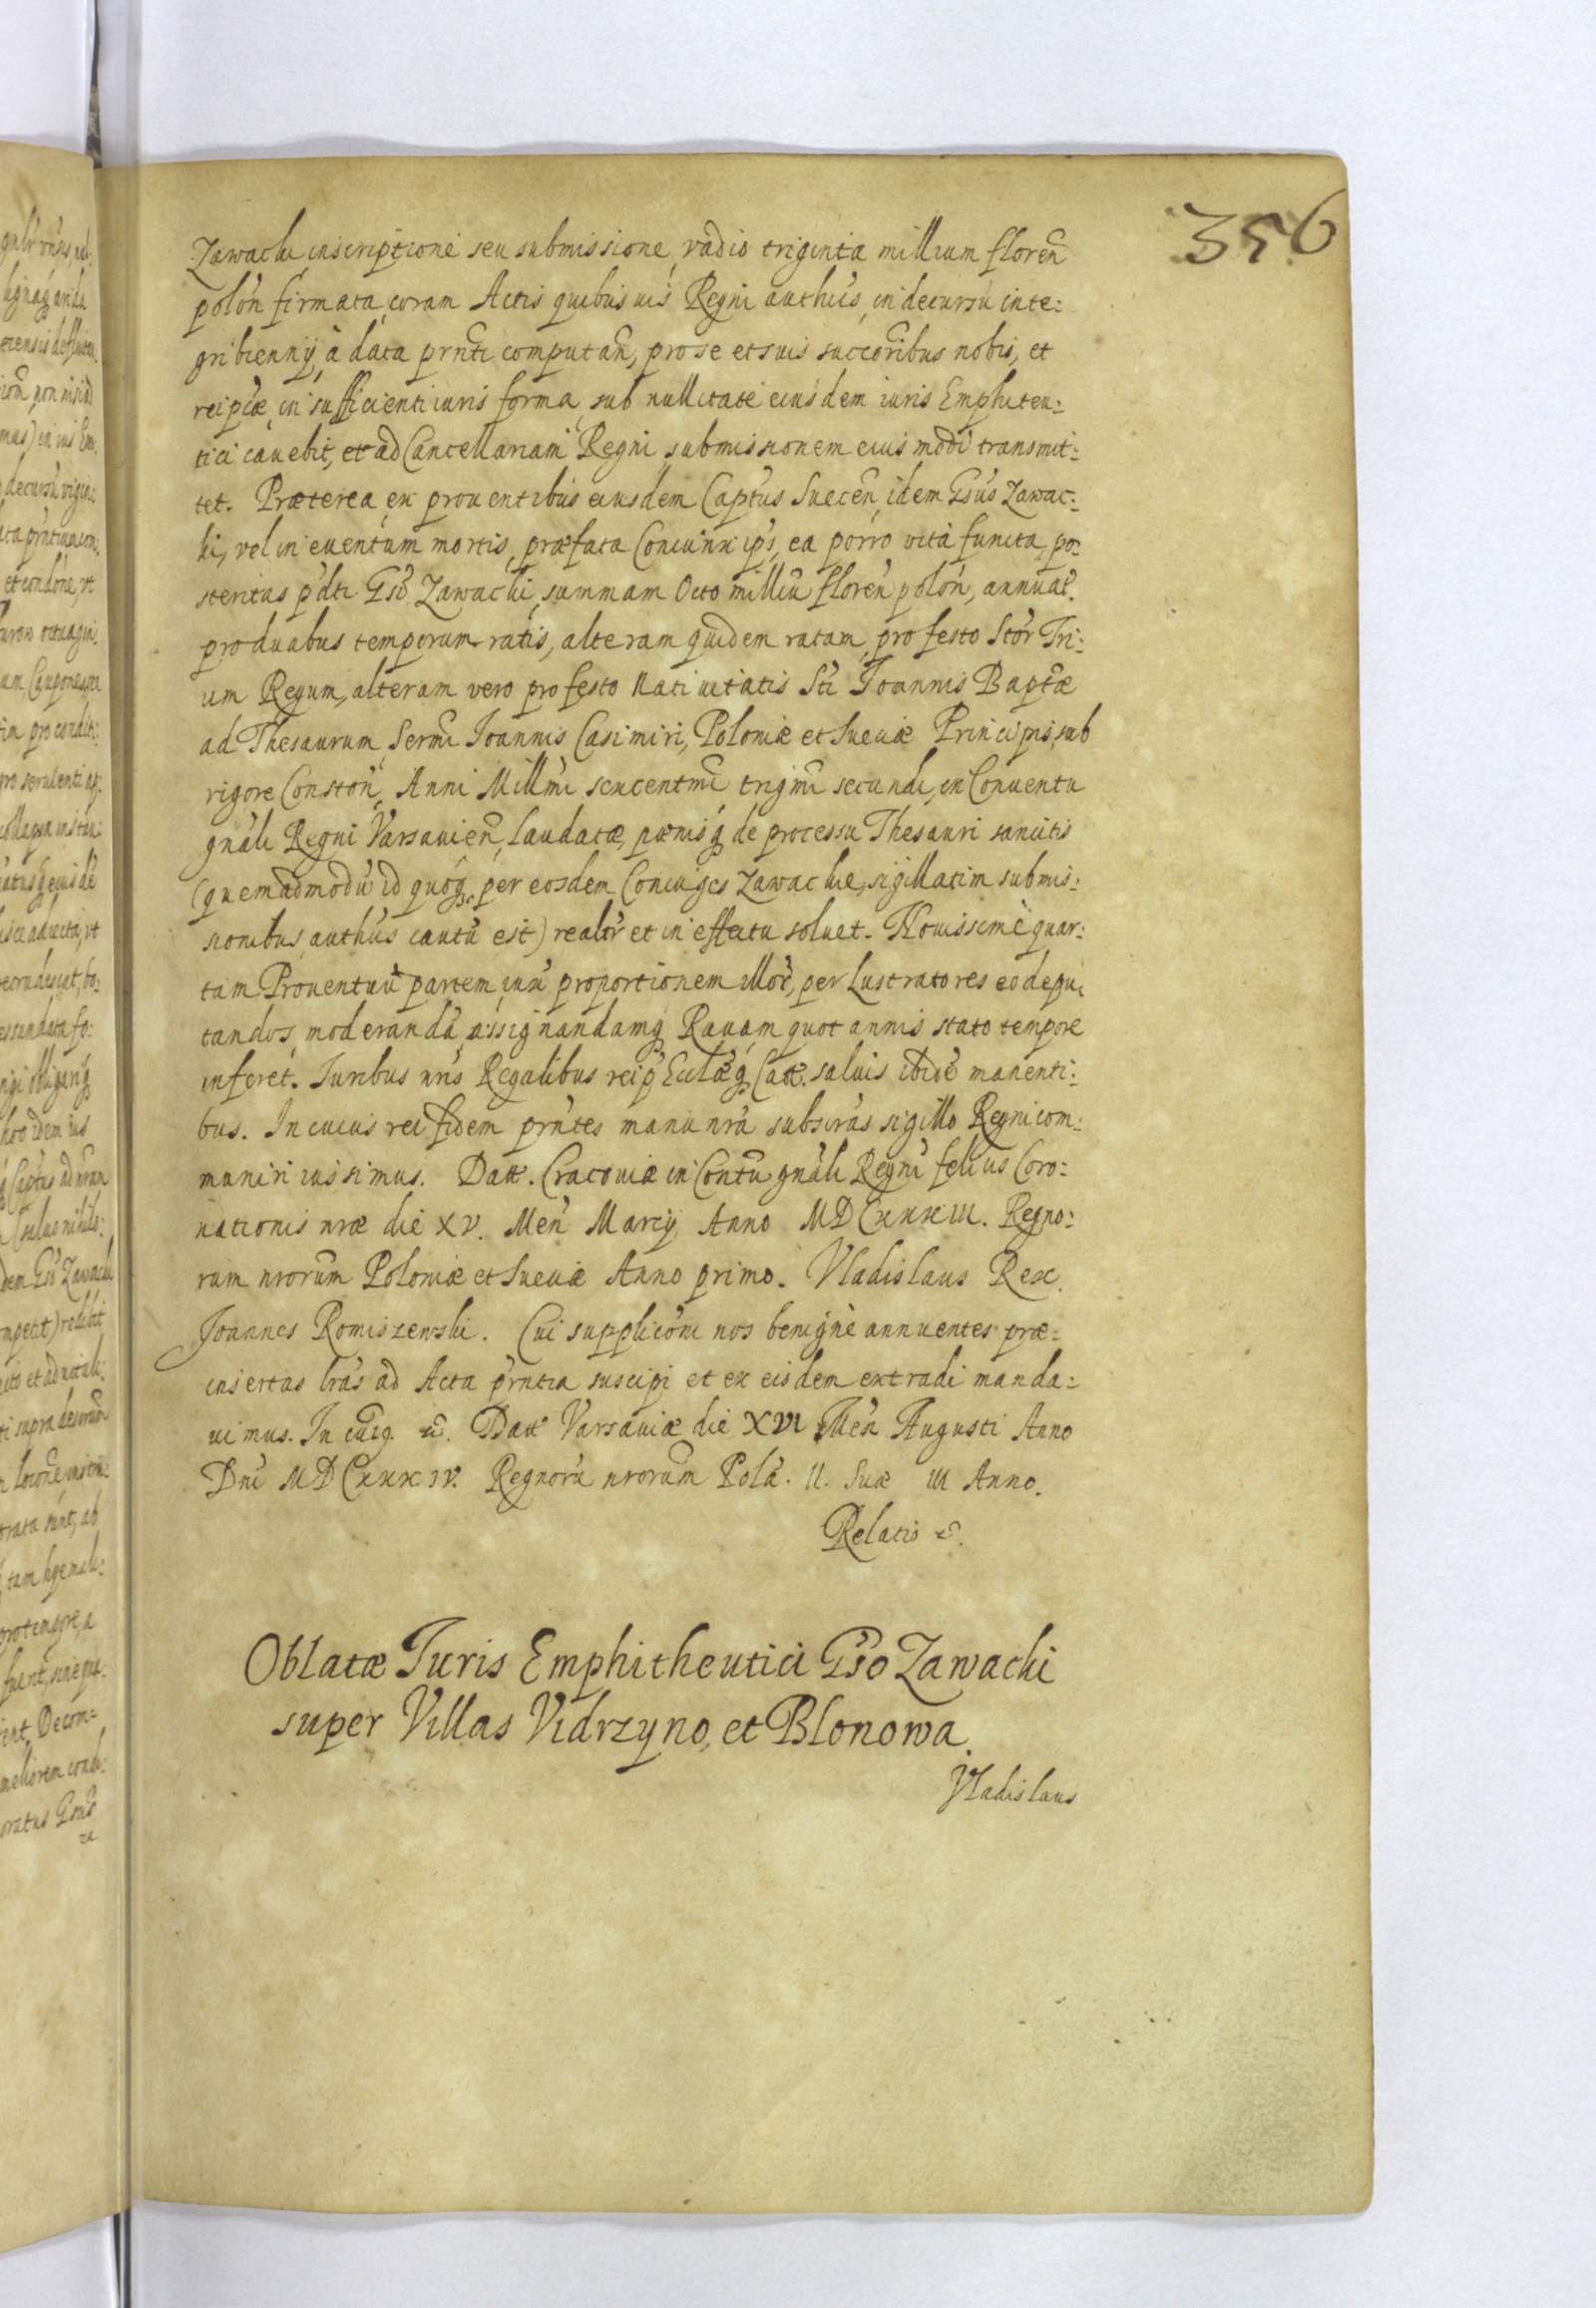 356
Zawacki inscriptione seu submissione, vadio triginta millium floreñ
polon̄ firmata, coram Actis quibusuis Regni authūs, in decursu inte:
gri biennÿ, à data prn̄ti computan̄, pro se et suis succoribus nobis, et
reipcæ, in sufficienti iuris forma, sub nullitate eiusdem iuris Emphiteu:
tici cauebit, et ad Cancellariam Regni submissionem eius modi transmit:
tet. Præterea, ex prouentibus eiusdem Captūs Suecen̄, idem Gsūs Zawac:
ki, vel in euentum mortis, præfata Coniunx ips̄, ea porro vità functa, po:
steritas p̄dti Gsō Zawacki, summam Octo milliū floren̄ polon̄, annuat̄.
pro duabus temporum ratis, alteram quidem ratam, pro festo Stor̄ Tri:
um Regum, alteram vero pro festo Natiuitatis Sti Joannis Baptæ
ad Thesaurum Serm̄i Joannis Casimiri, Poloniæ et Sueciæ Principis, sub
rigore Conston̄, Anni Millm̄i sexcentm̄i trigm̄i secundi, in Conuentu
gnāli Regni Varsauien̄, laudatæ, pœnisq̨ de processu Thesauri sancitis
(quemadmodū id quoq̨ per eosdem Coniuges Zawackie, sigillatim submis:
sionibus authūs cautū est) realir̄ et in effectu soluet. Nouissimè quar:
tam Prouentuū partem, iux̄ proportionem illor̄, per Lustratores eo depu:
tandos, moderandā, assignandamq̨ Rauam quot annis stato tempore
inferet. Iuribus nr̄is Regalibus reip̄ Ecclæq̨ Catt. saluis ibidē manenti:
bus. In cuius rei fidem prn̄tes manu nrā subscrās sigillo Regni com:
muniri iussimus. Datt. Cracouiæ in Contū gnāli Regni felicis Coro:
nationis nræ die XV. Men̄ Marcÿ Anno MDCXXXIII. Regno:
rum nrorum Poloniæ et Sueciæ Anno primo. Vladislaus Rex.
Joannes Romiszewski. Cui supplicōni nos benignè annuentes præ:
insertas lrās ad Acta prn̄tia suscipi et ex eisdem extradi manda:
uimus. In cuiq. &c. Datt Varsauiæ die XVI Men̄ Augusti Anno
Dni MDCXXXIV. Regnorū nrorum Polō. II. Suæ III Anno.
Relatio &c.
Oblatæ Juris Emphitheutici Gsō Zawacki
super Villas Vidrzyno, et Blonowa.
Vladislaus